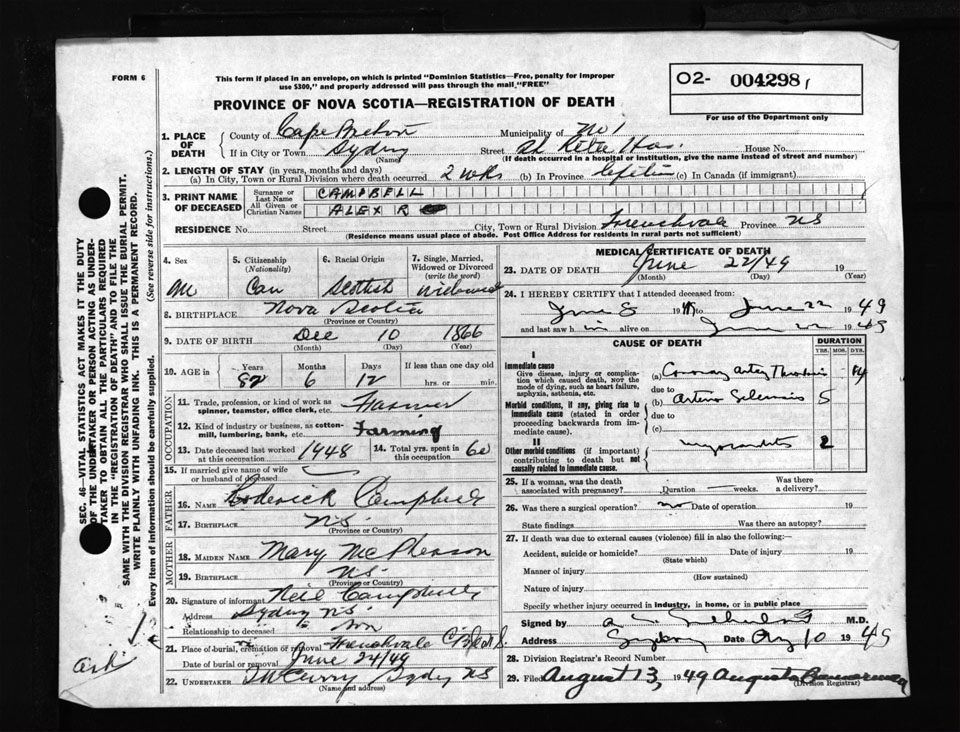 FORM 6
This form if placed in an envelope, on which is printed "Dominion Statistics—Free, penalty for improper
use $300," and properly addressed will pass through the mail "FREE"
O2- 004298
For use of the Department only
PROVINCE OF NOVA SCOTIA—REGISTRATION OF DEATH
1. PLACE OF DEATH County of Cape Breton Municipality of No 1
If in City or Town Sydney (Name) Street House No.
(If death occurred in a hospital or institution, give the name instead of street and number)
2. LENGTH OF STAY (in years, months and days)
(a) In City, Town or Rural Division where death occurred 2 wks (b) In Province (c) In Canada (if immigrant)
3. PRINT NAME OF DECEASED Surname or Last Name CAMPBELL
All Given or Christian Names ALEX R
RESIDENCE No. Street City, Town or Rural Division Frenchvale Province NS
(Residence means usual place of abode. Post Office Address for residents in rural parts not sufficient)
4. Sex M
5. Citizenship (Nationality) Can
6. Racial Origin Scottish
7. Single, Married, Widowed or Divorced (write the word) widowed
8. BIRTHPLACE Nova Scotia
(Province or Country)
9. DATE OF BIRTH Dec 10 1866
(Month) (Day) (Year)
10. AGE in Years 82 Months 6 Days 12 If less than one day old hrs. or min.
OCCUPATION
11. Trade, profession, or kind of work as spinner, teamster, office clerk, etc. Farmer
12. Kind of industry or business, as cotton-mill, lumbering, bank, etc. Farming
13. Date deceased last worked at this occupation 1948
14. Total yrs. spent in this occupation 60
15. If married give name of wife or husband of deceased
FATHER
16. NAME Roderick Campbell
17. BIRTHPLACE NS
(Province or Country)
MOTHER
18. MAIDEN NAME Mary McPherson
19. BIRTHPLACE NS
(Province or Country)
20. Signature of informant Neil Campbell
Address Sydney NS
Relationship to deceased Son
21. Place of burial, cremation or removal Frenchvale
Date of burial or removal June 24/49
22. UNDERTAKER Sydney NS
(Name and address)
MEDICAL CERTIFICATE OF DEATH
23. DATE OF DEATH June 22/49 19
(Month) (Day) (Year)
24. I HEREBY CERTIFY that I attended deceased from:
June 8 1949 to June 22 1949
and last saw h im alive on June 22 1949
CAUSE OF DEATH
DURATION
YRS. MOS. DYS.
I
Immediate cause
Give disease, injury or complication which caused death, NOT the mode of dying, such as heart failure, asphyxia, asthenia, etc.
(a) Coronary Artery Thrombosis 14
due to
Morbid conditions, if any, giving rise to immediate cause (stated in order proceeding backwards from immediate cause).
(b) Arterio Sclerosis 5
due to
(c)
II
Other morbid conditions (if important) contributing to death but not causally related to immediate cause.
Myocarditis 2
25. If a woman, was the death associated with pregnancy? Duration weeks. Was there a delivery?
26. Was there a surgical operation? no Date of operation 19
State findings Was there an autopsy?
27. If death was due to external causes (violence) fill in also the following:—
Accident, suicide or homicide? Date of injury 19
(State which)
Manner of injury
(How sustained)
Nature of injury
Specify whether injury occurred in industry, in home, or in public place
Signed by M.D.
Address Sydney Date 10 1949
28. Division Registrar's Record Number
29. Filed August 13, 1949 Augusta
(Division Registrar)
SEC. 46—VITAL STATISTICS ACT MAKES IT THE DUTY
OF THE UNDERTAKER OR PERSON ACTING AS UNDER-
TAKER TO OBTAIN ALL THE PARTICULARS REQUIRED
IN THE "REGISTRATION OF DEATH" AND TO FILE THE
SAME WITH THE DIVISION REGISTRAR WHO SHALL ISSUE THE BURIAL PERMIT.
WRITE PLAINLY WITH UNFADING INK. THIS IS A PERMANENT RECORD.
Every item of information should be carefully supplied. (See reverse side for instructions.)